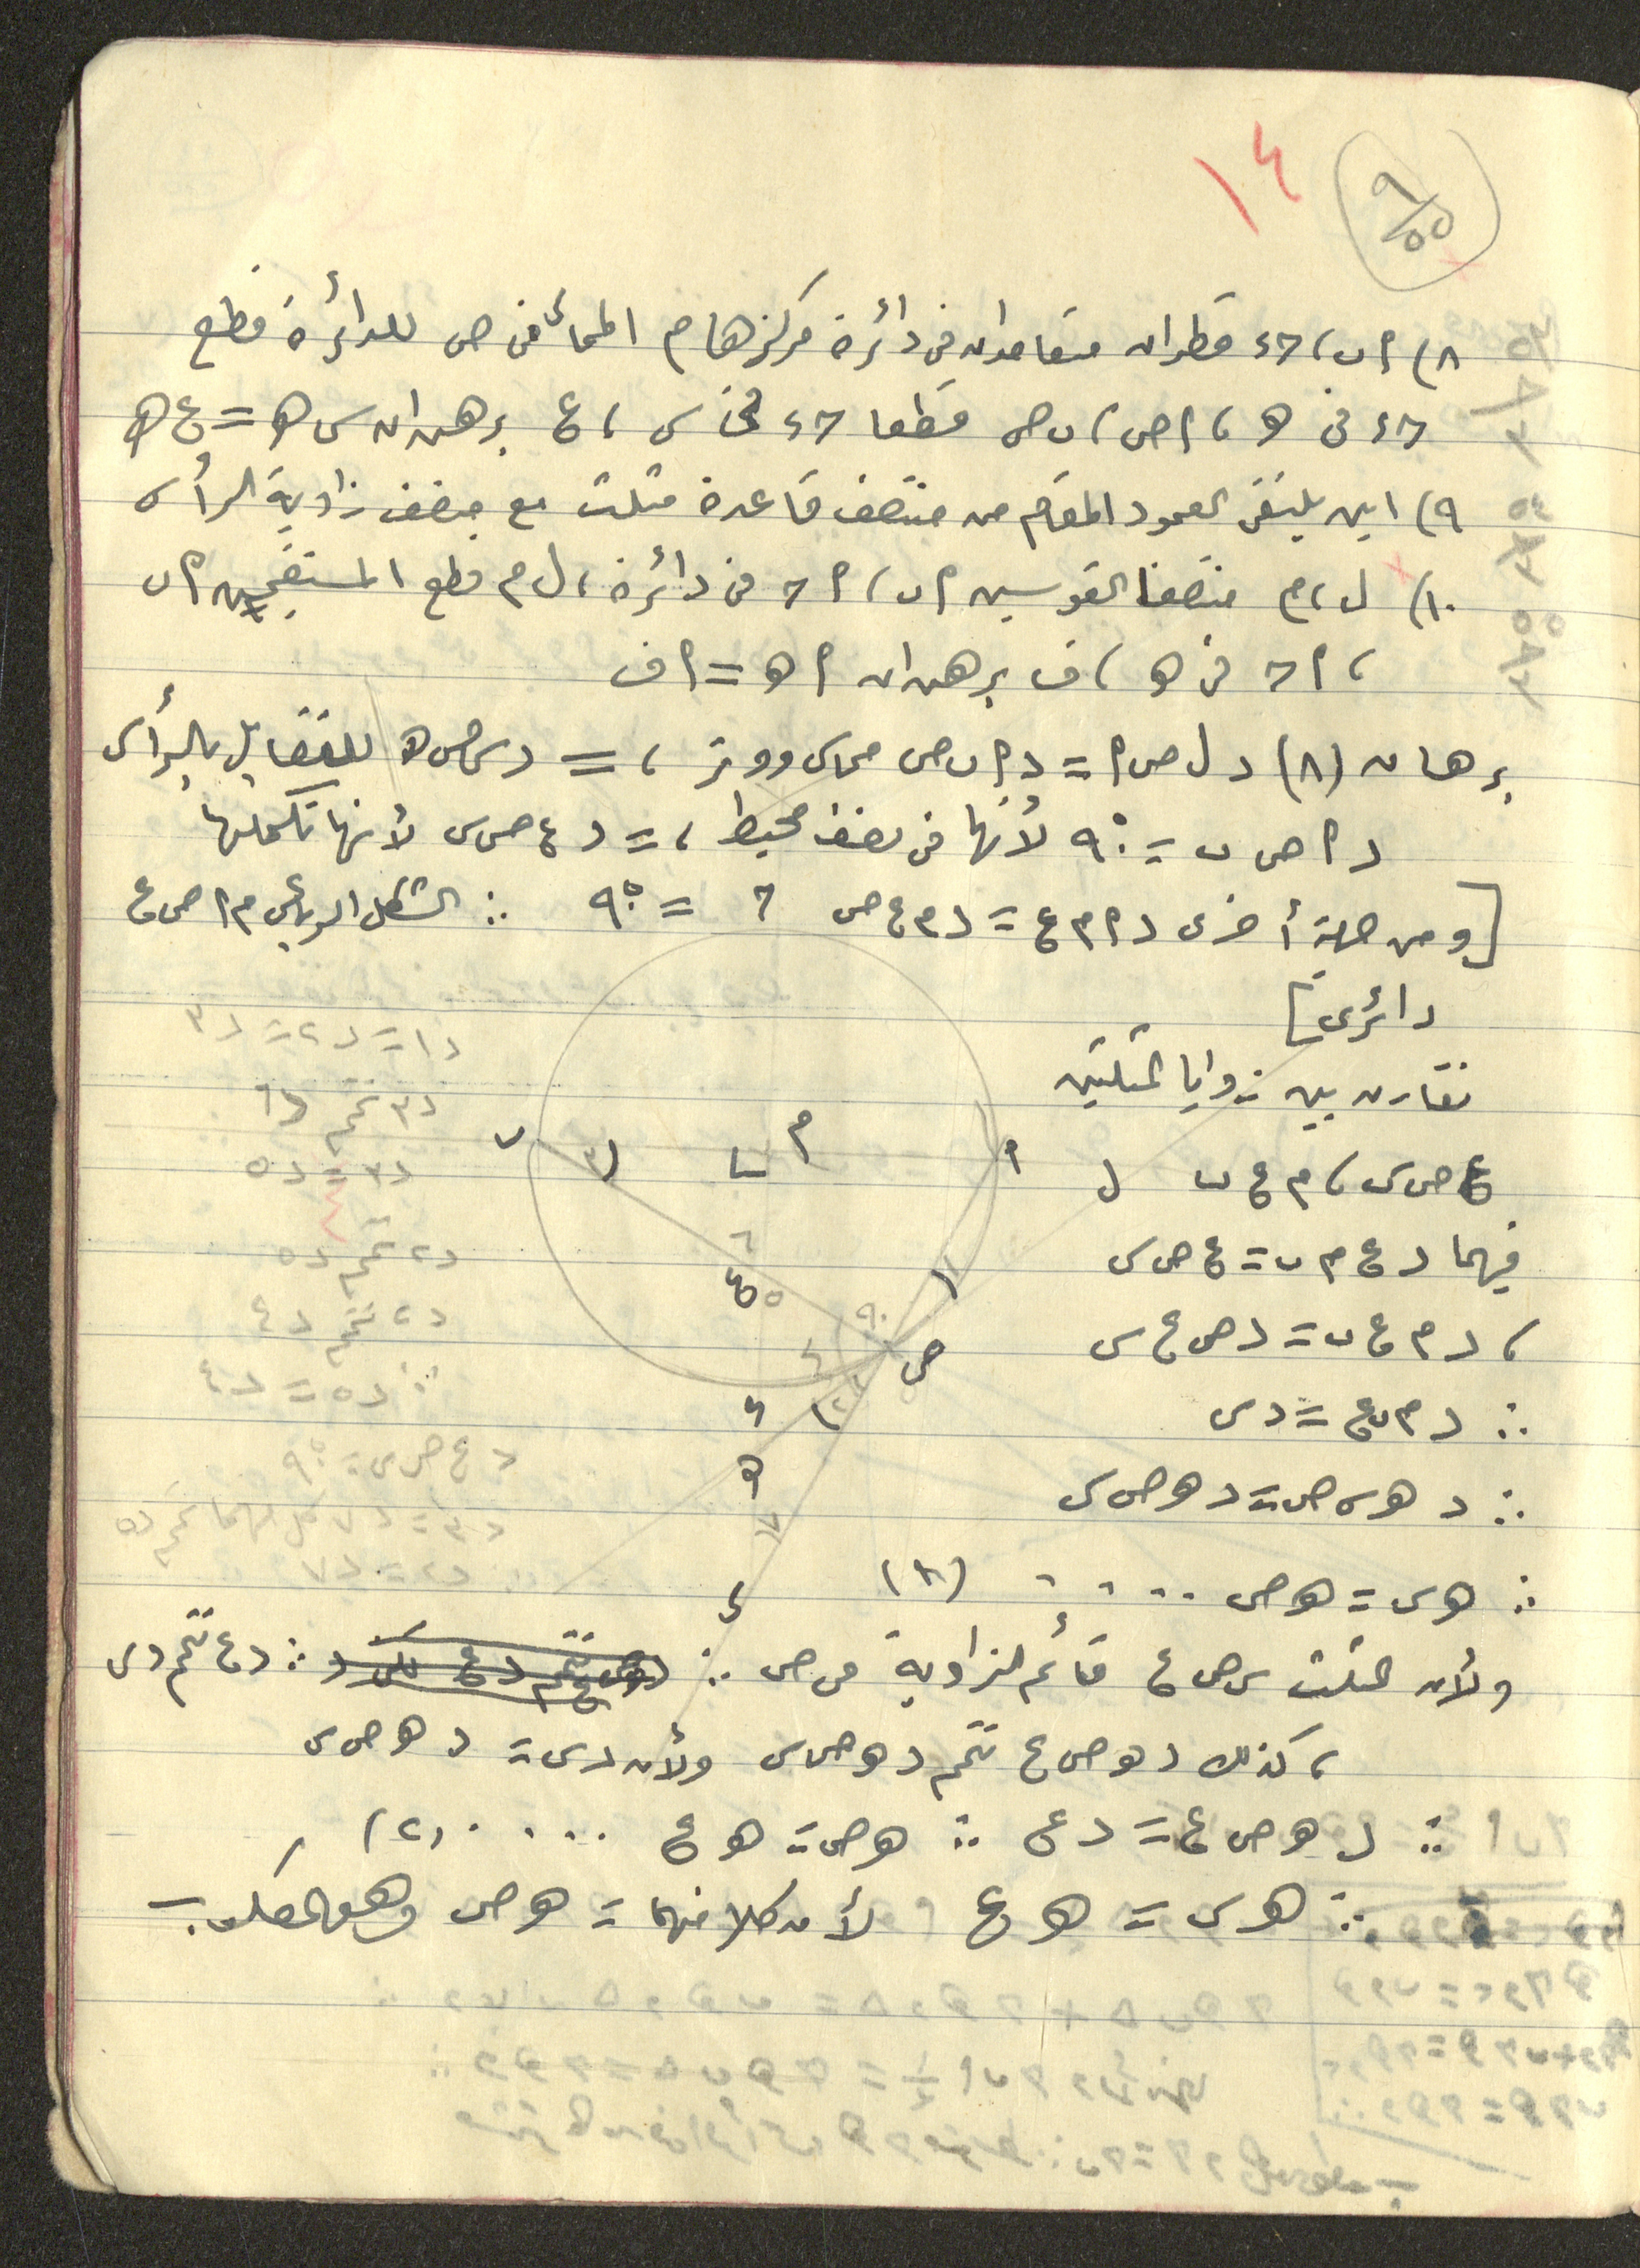 ١٤
٩/٥٥
٨) ا ب، حـ د قطران متعامدان فى دائرة مركزها م المماس فى ص للدائرة قطع
حـ د فى هـ، ا ص، ب ص قطعا حـ د فى س، ع برهن ان س هـ = ع هـ
٩) اين يلتقى العمود المقام من منتصف قاعدة مثلث مع منصف زاوية الرأس
١٠) ل، م منتصفا القوسين ا ب، ا حـ فى دائرة، ل م قطع المستقيمين ا ب
، ا حـ فى هـ، ف برهن ان ا هـ = ا ف
برهان (٨) د ل ص ا = د ا ب ص مماس ووتر، = د س ص هـ للتقابل بالرأس
د ا ص ب = ٩٠° لأنها فى نصف محيط، = د ع ص س لأنها تكملها
[ومن جهة أخرى د ا م ع = د م ع ص ? = ٩٠° ∴ الشكل الرباعى م ا ص ع
دائرى]
نقارن بين زوايا المثلثين
ع ص س، م ع ب
فيهما د ع م ب = ع ص س
، د م ع ب = د ص ع س
∴ د م ب ع = د س
∴ د هـ س ص = د هـ ص س
∴ هـ س = هـ ص .... (١)
ولأن المثلث س ص ع قائم الزاوية فى ص ∴ د ع تتم د س
، كذلك د هـ ص ع تتم د هـ ص س ولأن د س = د هـ ص س
∴ د هـ ص ع = د ع ∴ هـ ص = هـ ع .... (٢)
∴ هـ س = هـ ع لأن كلا منهما = هـ ص وهو المطلوب
د ١ = د ٢ = د ٣
د ٣ تتم د ٦
د ٣ = د ٥
د ٢ تتم د ٥
د ٢ تتم د ٤
∴ د ٥ = د ٤
د ع ص س = ٩٠°
د ٣ = د ٧ كل منهما تتم د ٥
∴ د ٢ = د ٧
ب
م
ا
ل
ع
ص
د
هـ
س